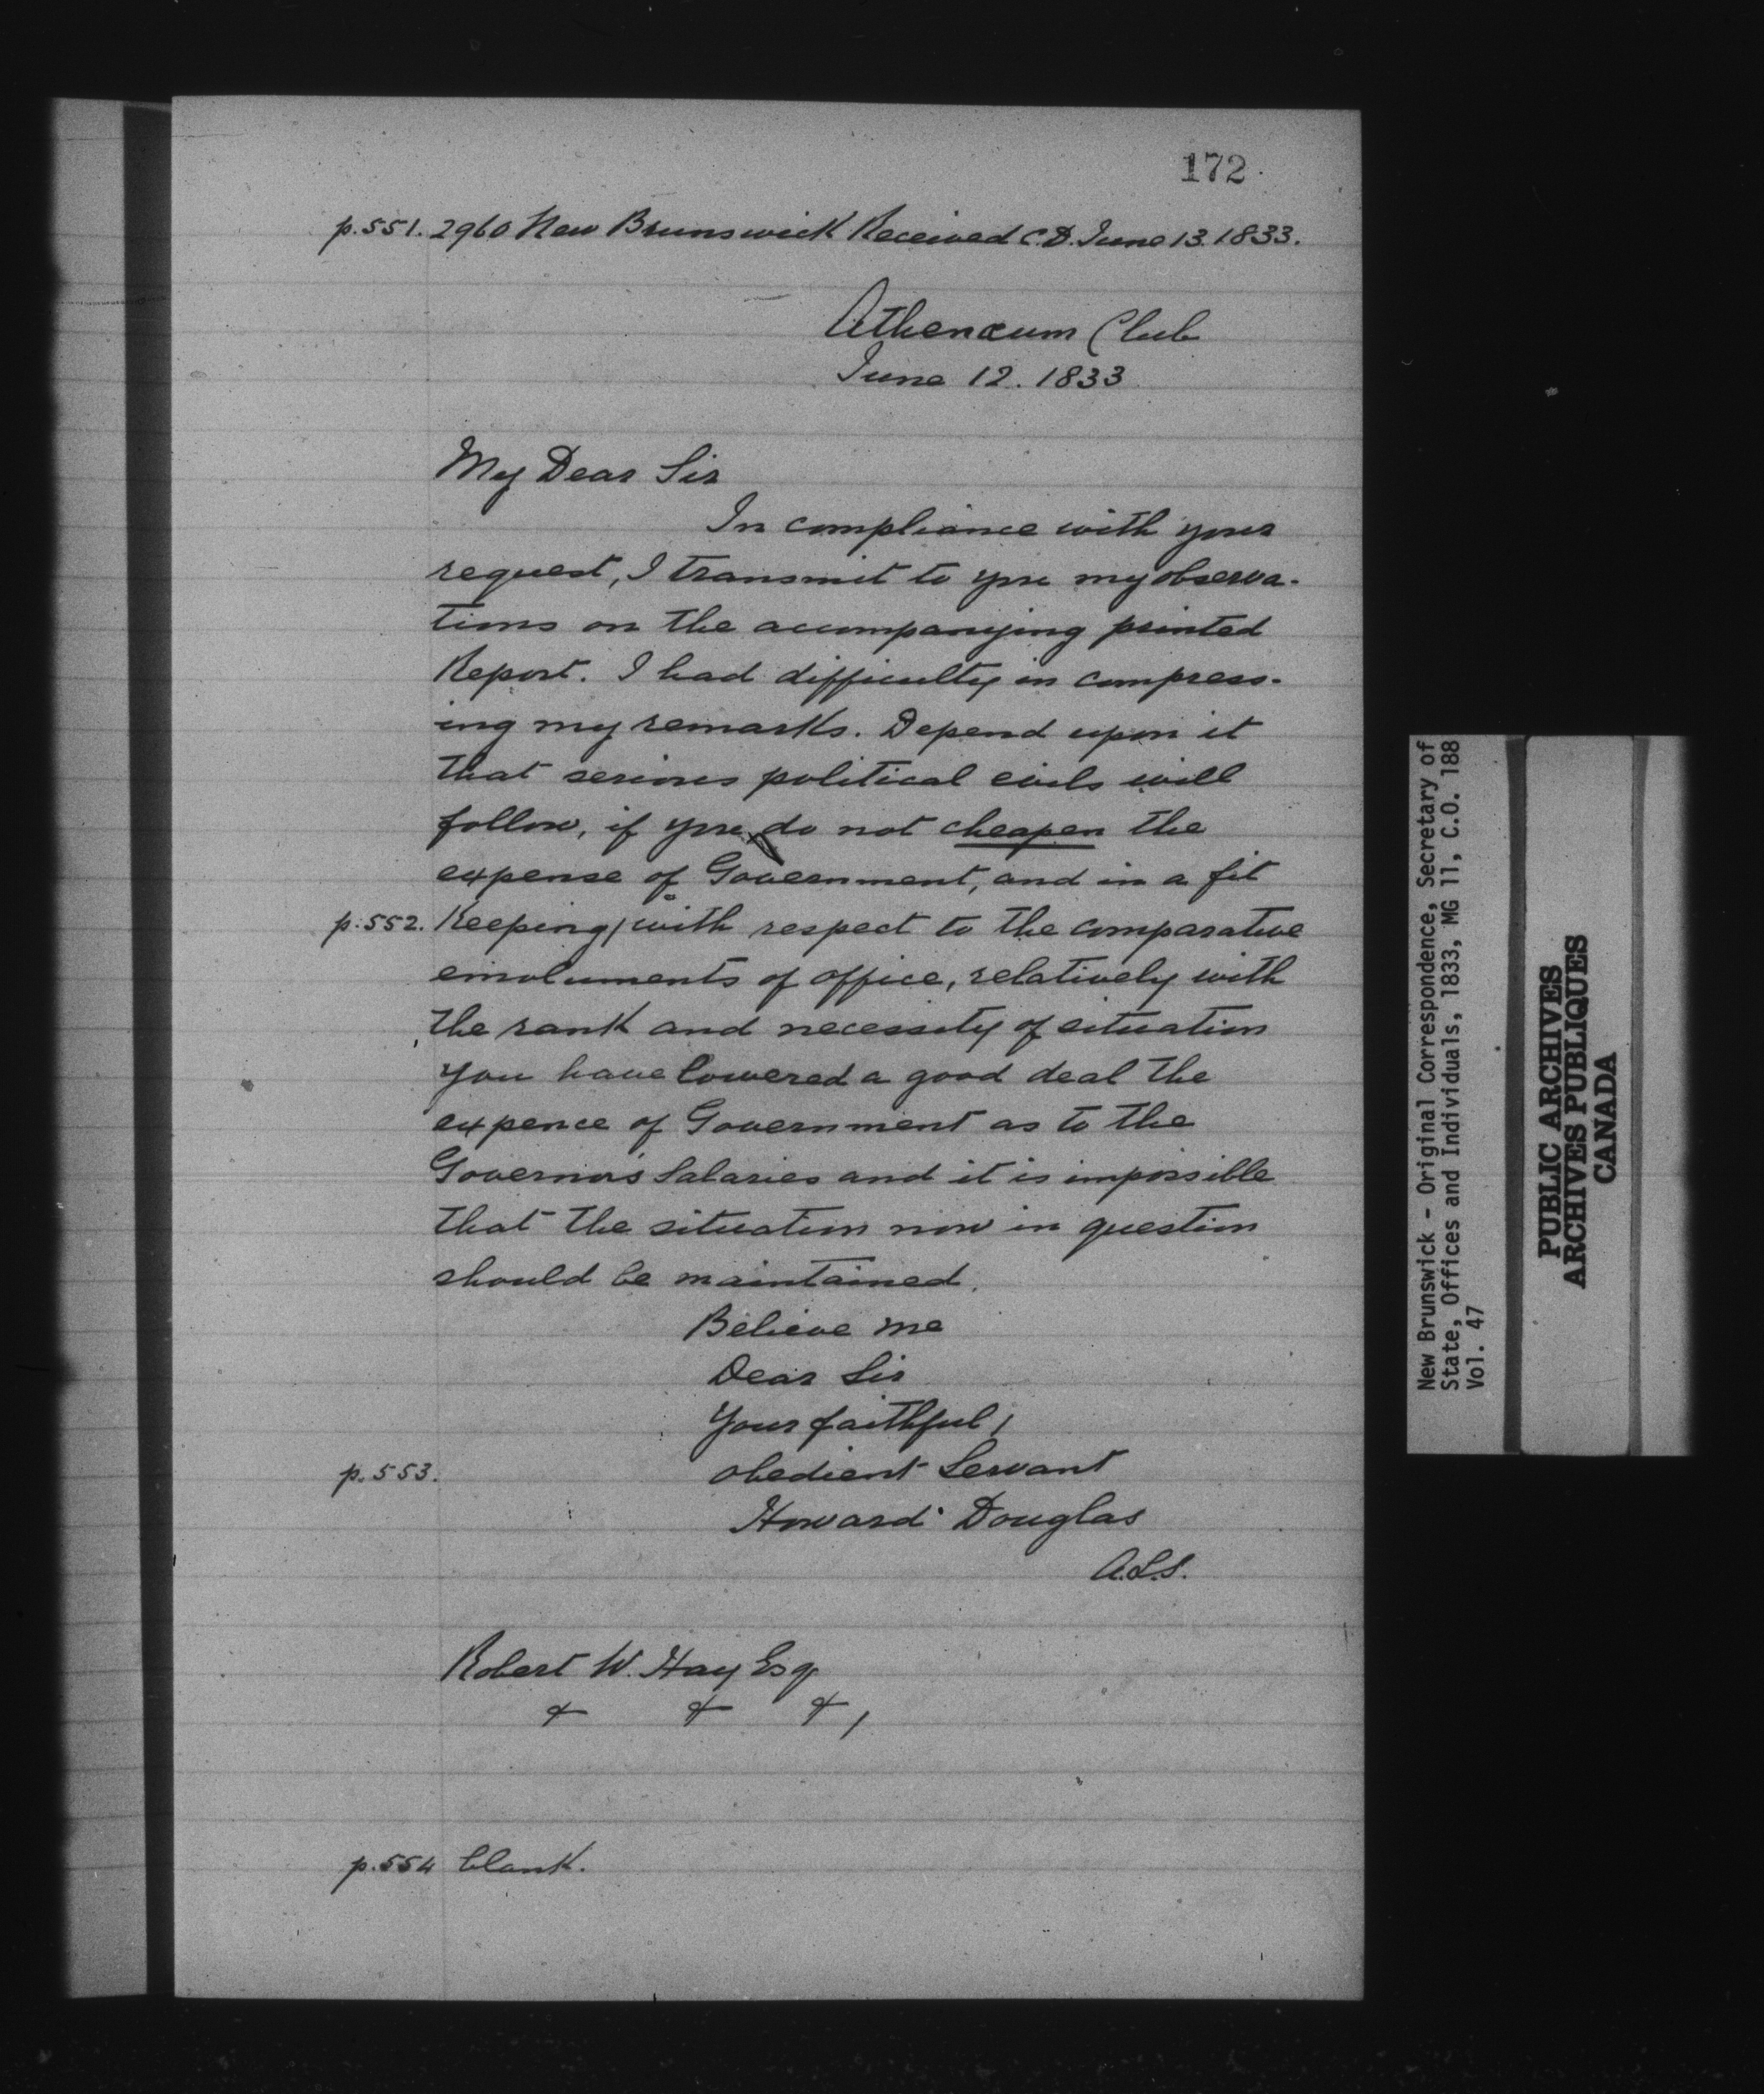 172
p.551. 2960 New Brunswick Received C.D. June 13. 1833.
Athenæum Club
June 12. 1833
My Dear Sir
In compliance with your
request, I transmit to you my observa-
tions on the accompanying printed
Report. I had difficulty in compress-
ing my remarks. Depend upon it
that serious political evils will
follow, if you do not cheapen the
expense of Government, and in a fit
p.552. Keeping/with respect to the comparative
emoluments of office, relatively with
the rank and necessity of situation
you have lowered a good deal the
expence of Government as to the
Governor's Salaries and it is impossible
that the situation now in question
should be maintained.
Believe me
Dear Sir
Your faithful/
p.553. obedient Servant
Howard Douglas
A.L.S.
Robert W. Hay Esq
& & &/
p.554 blank.
New Brunswick - Original Correspondence, Secretary of
State, Offices and Individuals, 1833, MG 11, C.O. 188
Vol. 47
PUBLIC ARCHIVES
ARCHIVES PUBLIQUES
CANADA